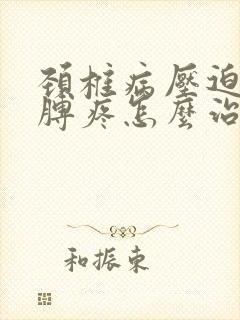 頚椎病壓迫
髀疼怎麼治
和振東